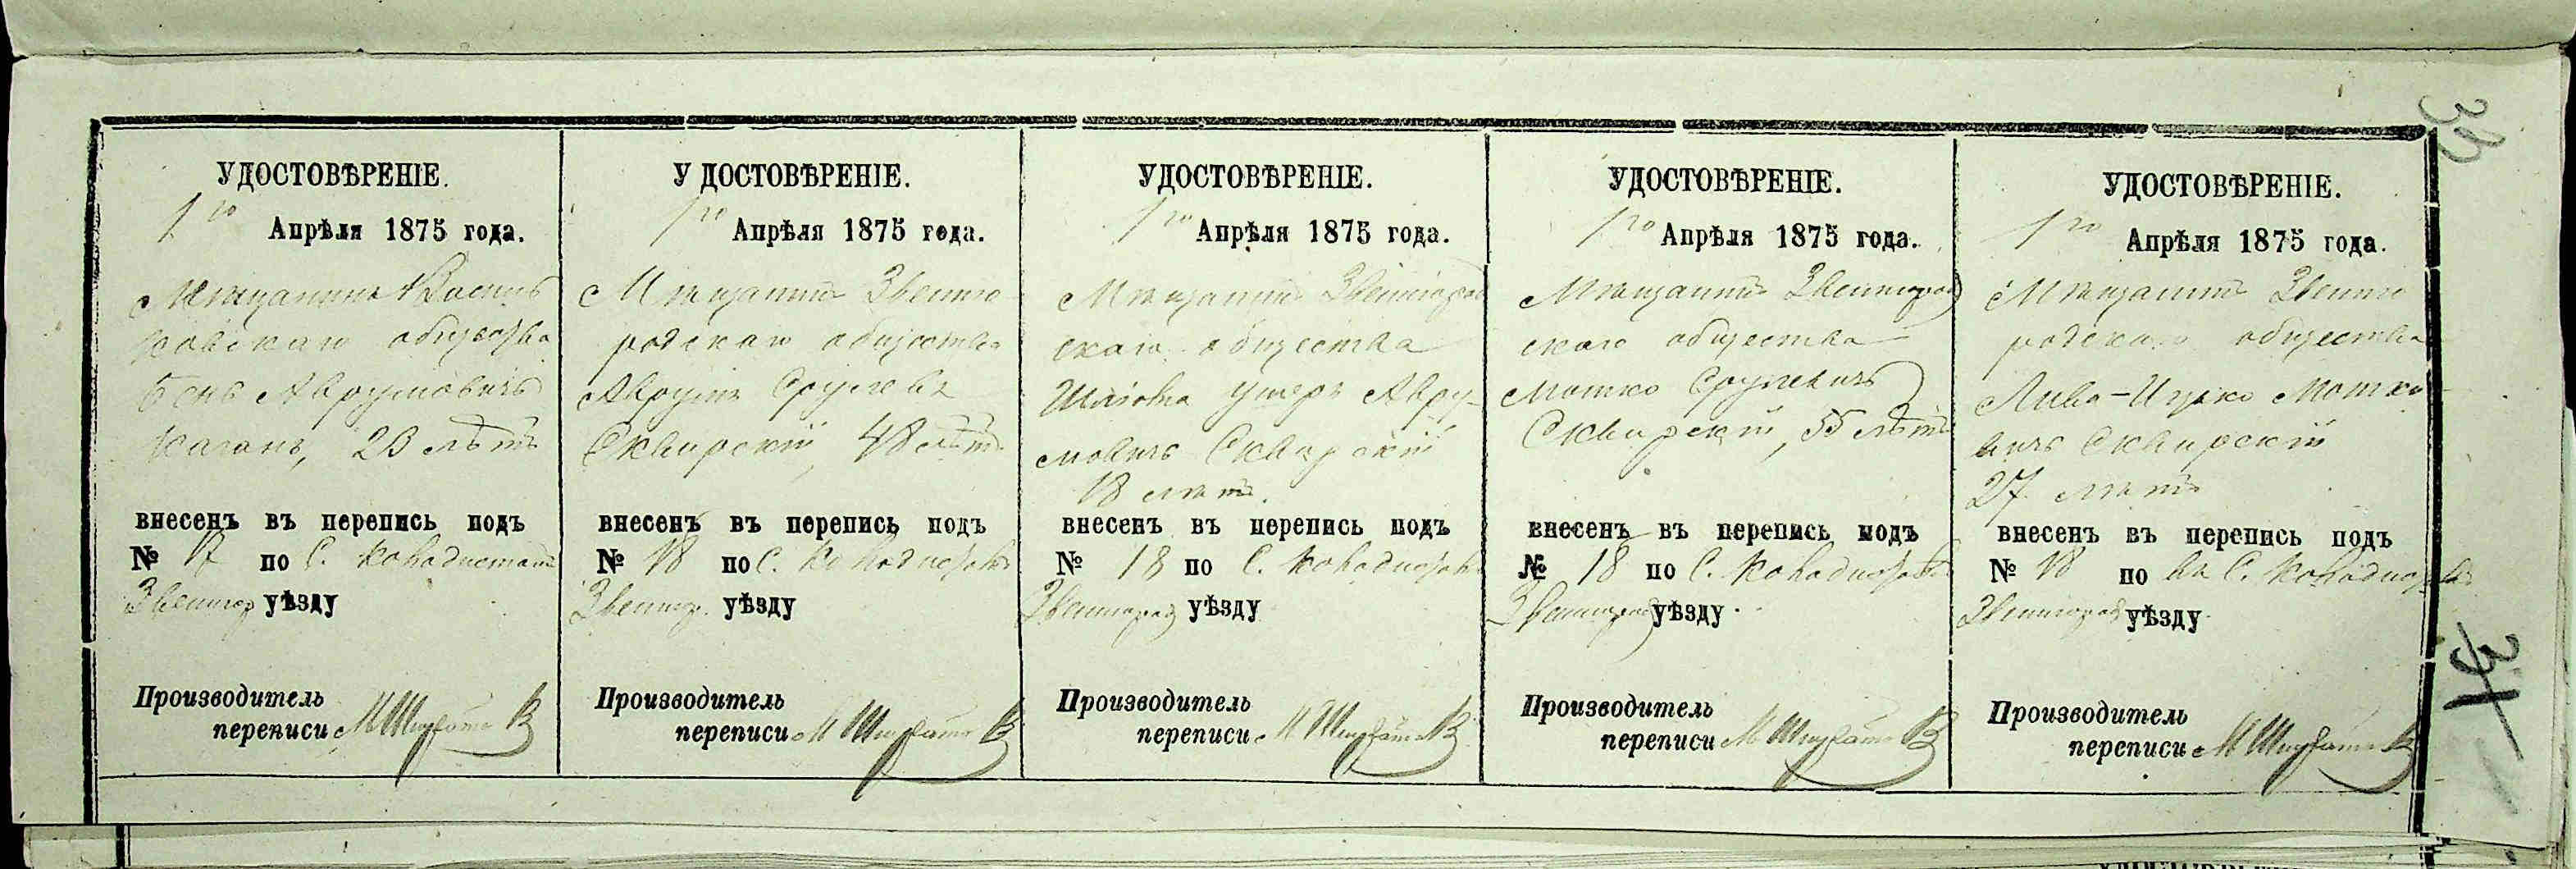 УДОСТОВѢРЕНІЕ.
1го Апрѣля 1875 года.
Мѣщанинъ Василь
ковскаго общества
Бень Аврумовичъ
Каганъ, 20 лѣтъ
внесенъ въ перепись подъ
№ 17 по С. Коновистамъ
Звенигор уѣзду
Производитель
переписи М
УДОСТОВѢРЕНІЕ.
1го Апрѣля 1875 года.
Мѣщанинъ Звениго
родскаго общества
Аврумъ Срулевъ
Сквирскій, 48 лѣтъ
внесенъ въ перепись подъ
№ 18 по С.
Звенигр. уѣзду
Производитель
переписи М
УДОСТОВѢРЕНІЕ.
1го Апрѣля 1875 года.
Мѣщанинъ Звенигород
скаго общества
Ушеръ Авру-
мовичъ Сквирскій
18 лѣтъ.
внесенъ въ перепись подъ
№ 18 по С.
Звенигород уѣзду
Производитель
переписи М
УДОСТОВѢРЕНІЕ.
1го Апрѣля 1875 года.
Мѣщанинъ Звенигород
скаго общества
Мошко Срулевичъ
Сквирскій, 55 лѣтъ
внесенъ въ перепись подъ
№ 18 по С.
Звенигород уѣзду
Производитель
переписи М
УДОСТОВѢРЕНІЕ.
1го Апрѣля 1875 года.
Мѣщанинъ Звениго
родскаго общества
Лива-Ицко Мошко
вичъ Сквирскій
27 лѣтъ
внесенъ въ перепись подъ
№ 18 по въ С.
Звенигород уѣзду
Производитель
переписи М